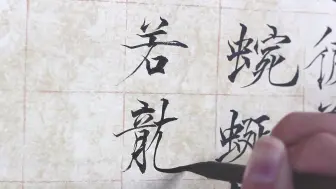 蜿蜒
若龍